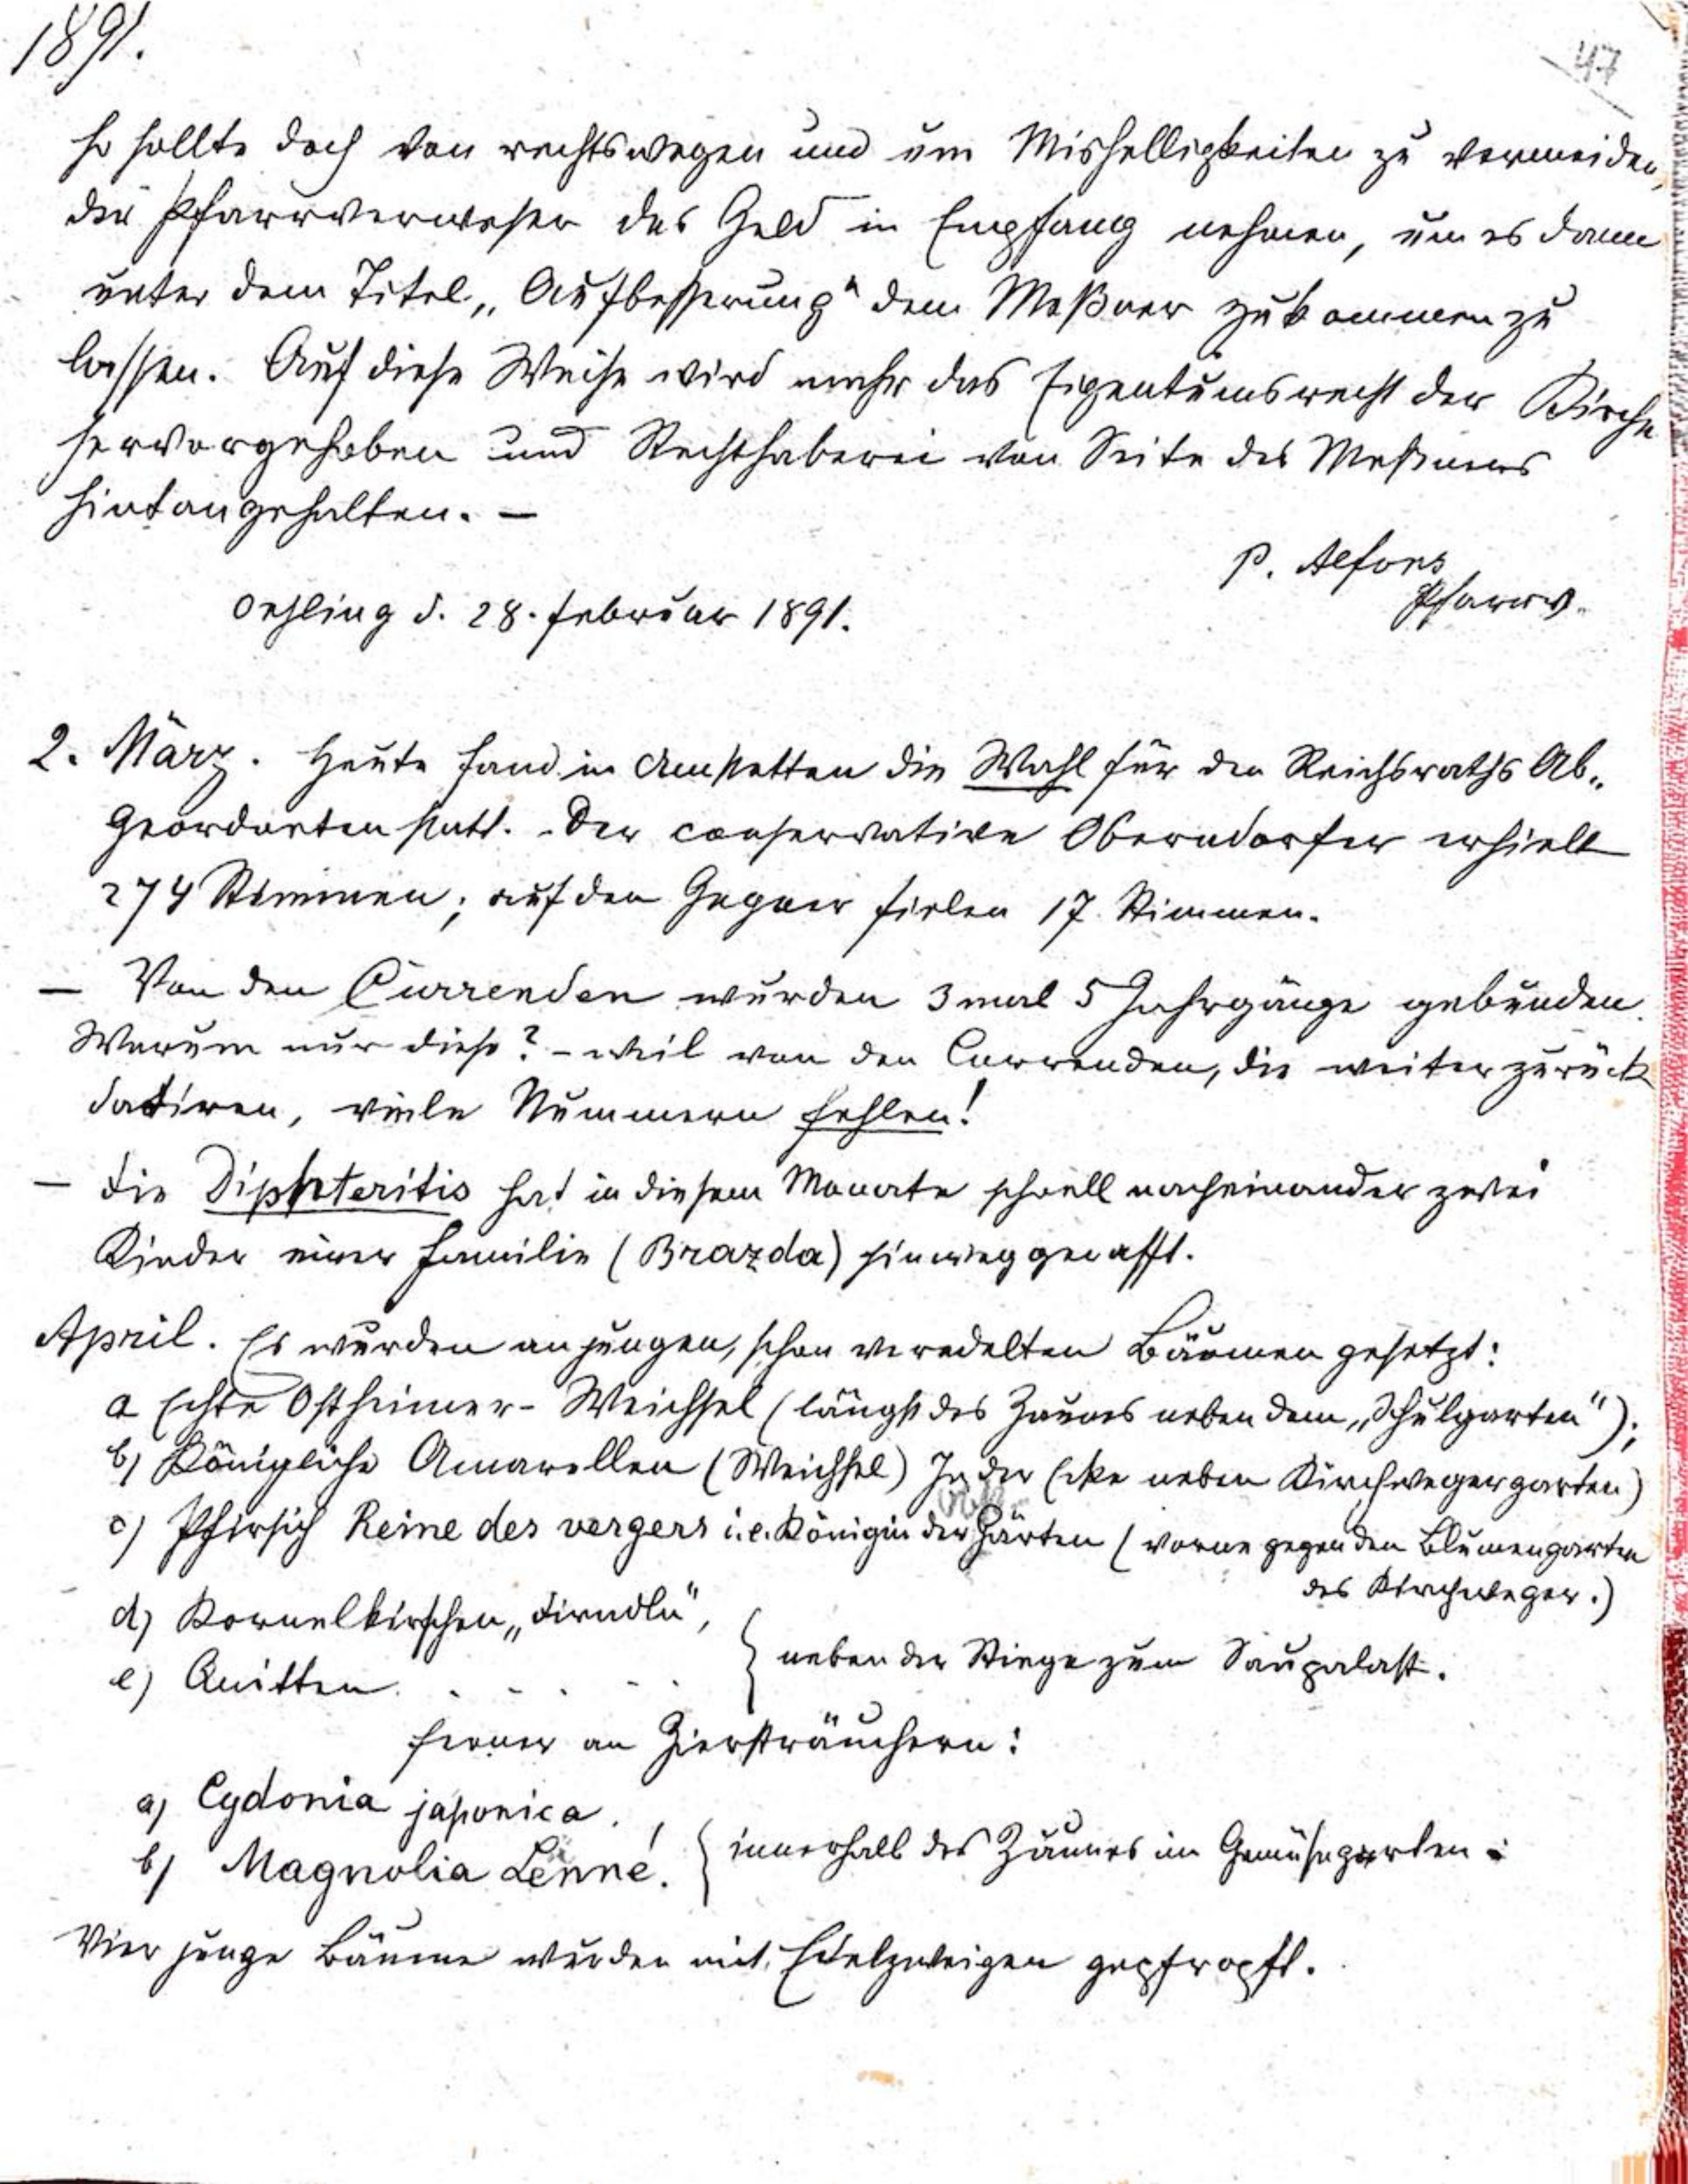 1891.
47
so sollte doch von rechtswegen und um Mishelligkeiten zu vermeiden,
der Pfarrverweser das Geld in Empfang nehmen, um es dann
unter dem Titel „Aufbesserung“ dem Meßner zukommen zu
lassen. Auf diese Weise wird mehr das Eigentumsrecht der Kirche
hervorgehoben und Rechthaberei von Seite des Meßners
hintangehalten. —
P. Alfons
Pfarrv.
Oehling d. 28. Februar 1891.
2. März. Heute fand in Amstetten die Wahl für den Reichsraths Ab-
geordneten statt. – Der conservative Oberndorfer erhielt
274 Stimmen; auf den Gegner fielen 17 Stimmen.
— Von den Currenden wurden 3 mal 5 Jahrgänge gebunden.
Warum nur diese? – weil von den Currenden, die weiter zurück
datiren, viele Nummern fehlen!
— Die Diphteritis hat in diesem Monate schnell nacheinander zwei
Kinder einer Familie (Brazda) hinweggerafft.
April. Es wurden an jungen, schon veredelten Bäumen gesetzt:
a Echte Ostheimer-Weichsel (längst des Zaunes neben dem „Schulgarten“);
b) Königliche Amarellen (Weichsel) In der Ecke neben Kirchwegergarten)
c) Pfirsich Reine des vergers i.e. Königin der Gärten (vorne gegen den Blumengarten
des Kirchweger.)
d) Kornelkirschen „Dirndln“,
e) Quitten. . . . . . { neben der Stiege zum Saupalast.
ferner an Ziersträuchern:
a) Cydonia japonica. ,
b) Magnolia Lenné. { innerhalb des Zaunes im Gemüsegarten.
Vier junge Bäume wurden mit Edelzweigen gepfropft.